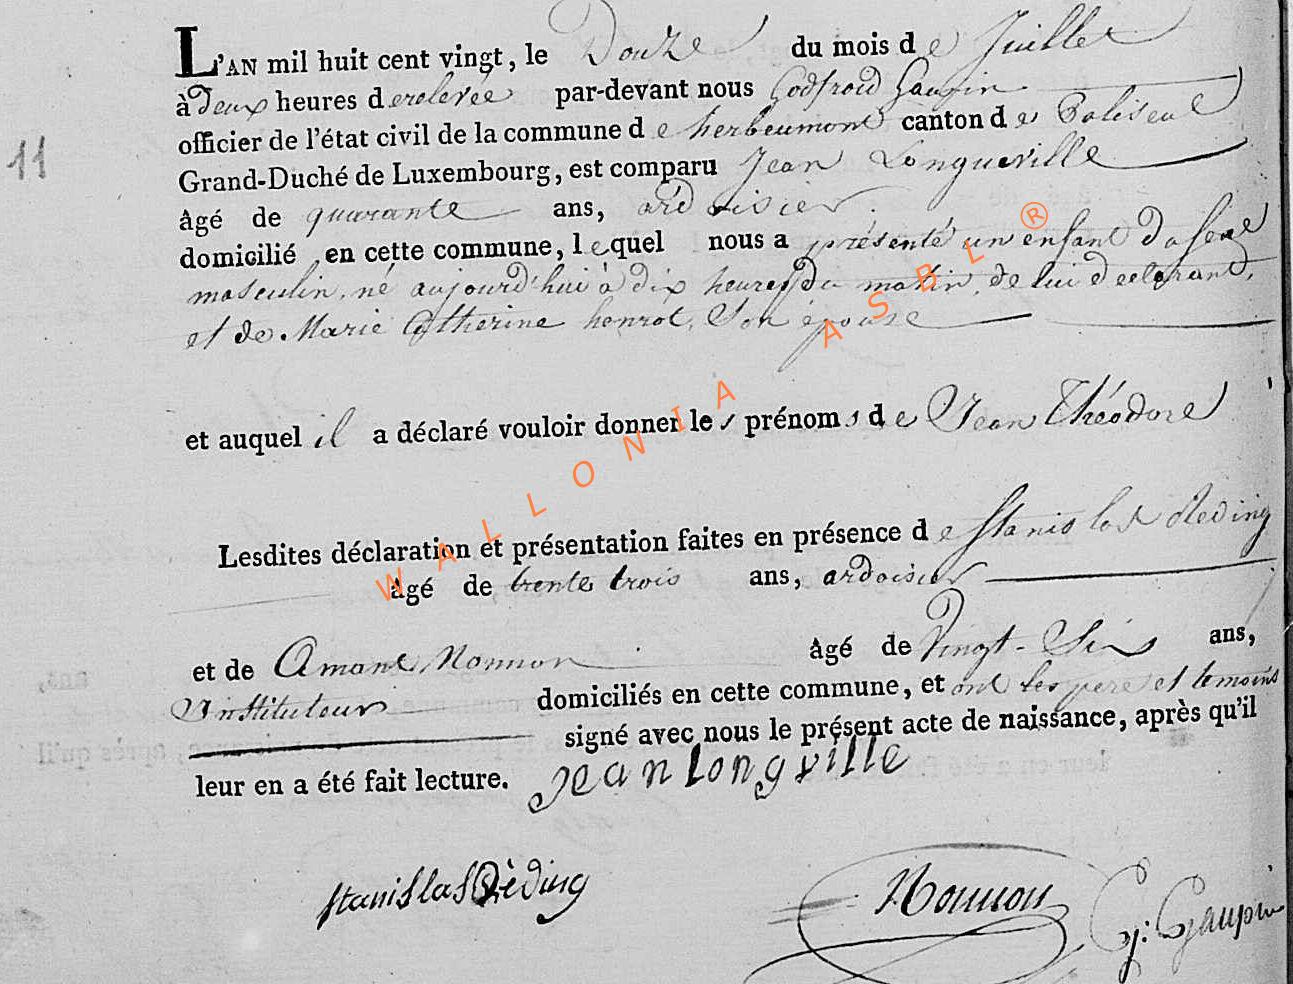 L'AN mil huit cent vingt, le Douze du mois de Juillet
à Deux heures derelevée par-devant nous Godfroid Gaupin
officier de l'état civil de la commune de herbeumont canton de Paliseul
11
Grand-Duché de Luxembourg, est comparu Jean Longueville
âgé de quarante ans, ardoisier
domicilié en cette commune, lequel nous a présenté un enfant Du sexe
masculin, né aujourd'hui à dix heures du matin, de lui declarant,
et de Marie Catherine henrot, Son épouse
et auquel il a déclaré vouloir donner les prénoms de Jean Théodore
Lesdites déclaration et présentation faites en présence de Stanislas Reding
âgé de trente trois ans, ardoisier
et de Amant Nonnon âgé de Vingt-Six ans,
Instituteur domiciliés en cette commune, et ont les pere et temoins
signé avec nous le présent acte de naissance, après qu'il
leur en a été fait lecture. Jean Longville
Stanislas Rèding Nonnon G: Gaupin
WALLONIA ASBL ®